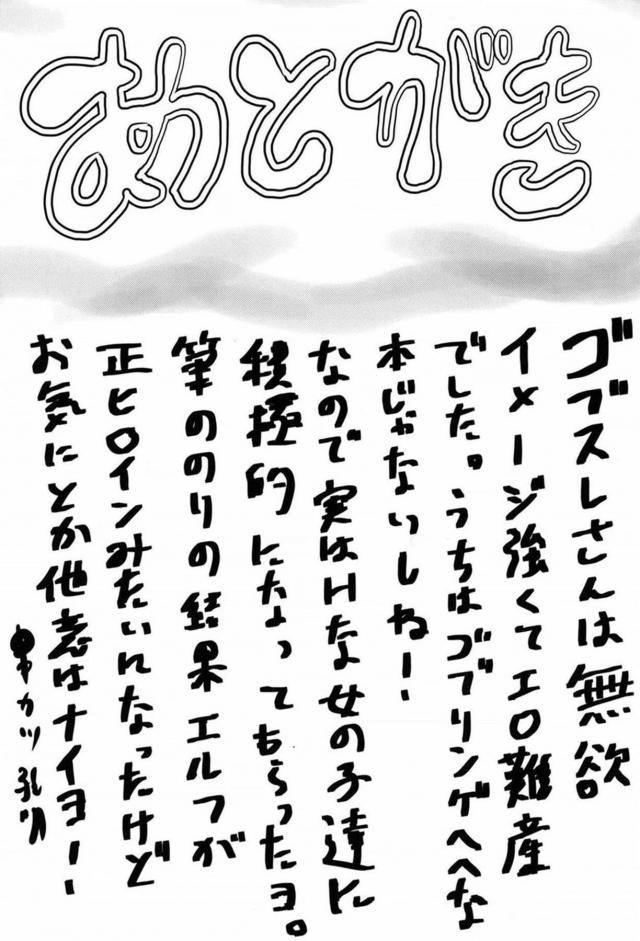 あとがき
ゴブスレさんは無欲
イメージ強くてエロ難産
でした。うちはゴブリンゲヘヘな
本じゃないしねー!
なので実はHな女の子達に
積極的になってもらったヨ。
筆のノリの結果エルフが
正ヒロインみたいになったけど
お気にとか他意はナイヨー!